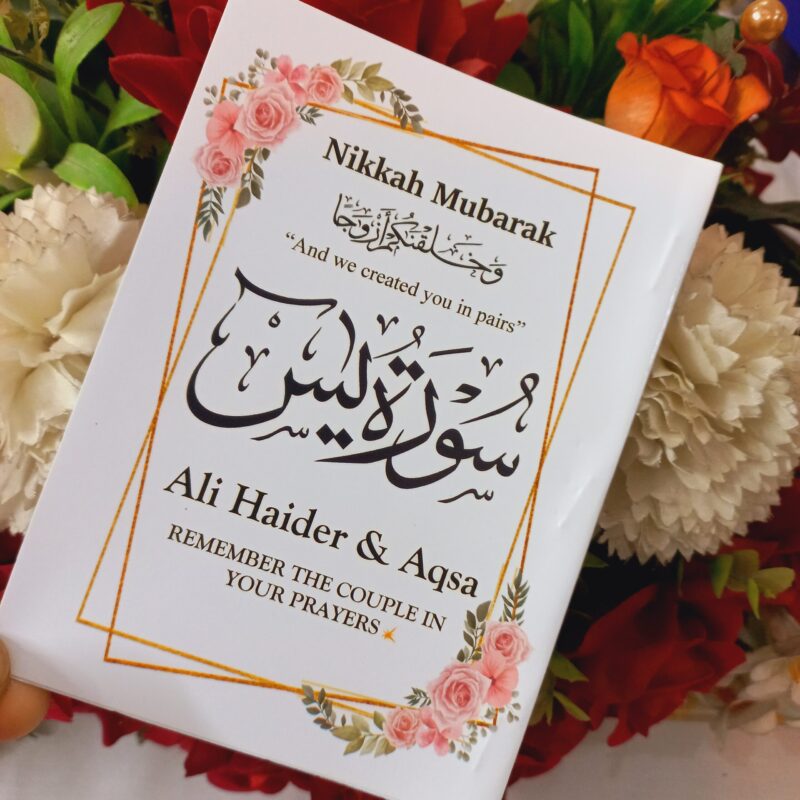 Nikkah Mubarak
وَخَلَقْنَكُمْ أَزْوَجًا
“And we created you in pairs”
سورة يس
Ali Haider & Aqsa
REMEMBER THE COUPLE IN
YOUR PRAYERS